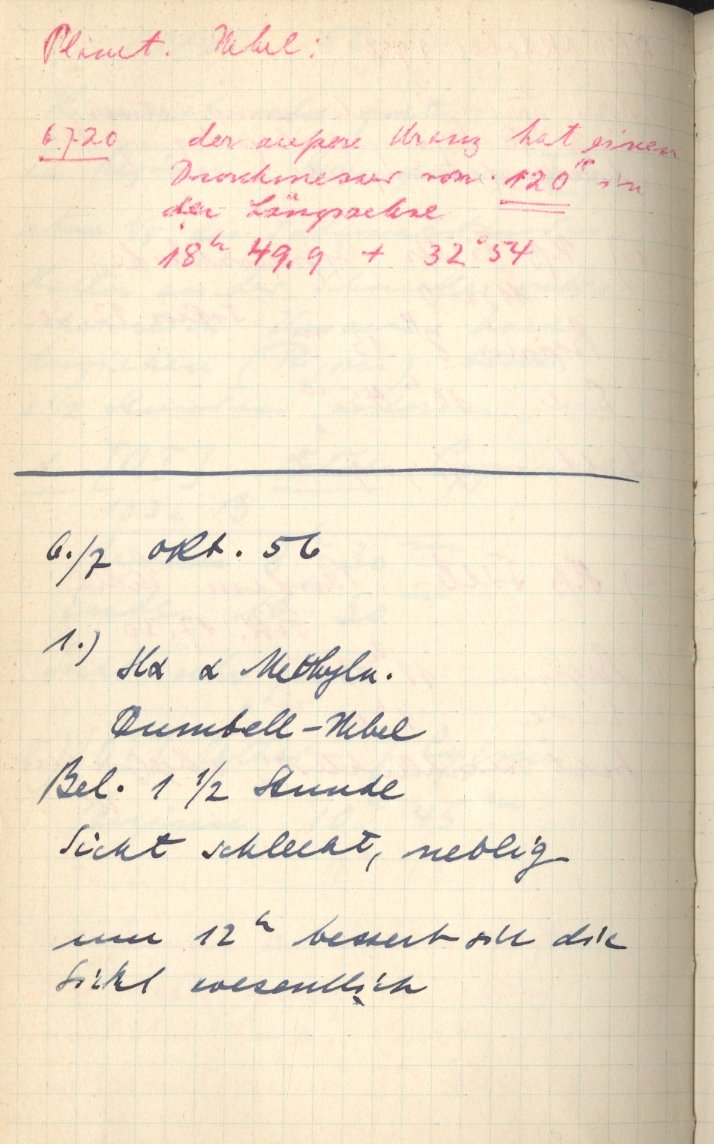 Planet. Nebel:
6720 der äußere Kranz hat einen
Durchmesser von 120" in
der Längsachse
18h 49.9 + 32°54
6./7 Okt. 56
1.) Hα α Methyln.
Dumbell-Nebel
Bel. 1 1/2 Stunde
Sicht schlecht, neblig
um 12h bessert sich die
Sicht wesentlich